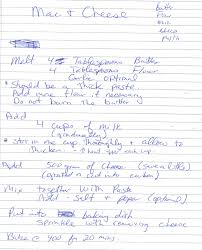 Mac & Cheese
butter
flour
milk
cheese
pasta
Melt 4 Tablespoons Butter
4 Tablespoons Flour
Garlic optional
* Should be a thick paste.
Add more flour if necessary
Do not burn the butter
Add
4 cups of milk
(gradually)
* stir in one cup thoroughly & allow to
thicken
Add 500 grm of cheese
(grated or cut into cubes)
Mix together with Pasta
Add - Salt & paper (optional)
Put into baking dish
Sprinkle with remaining cheese
Bake @ 400 for 20 mins